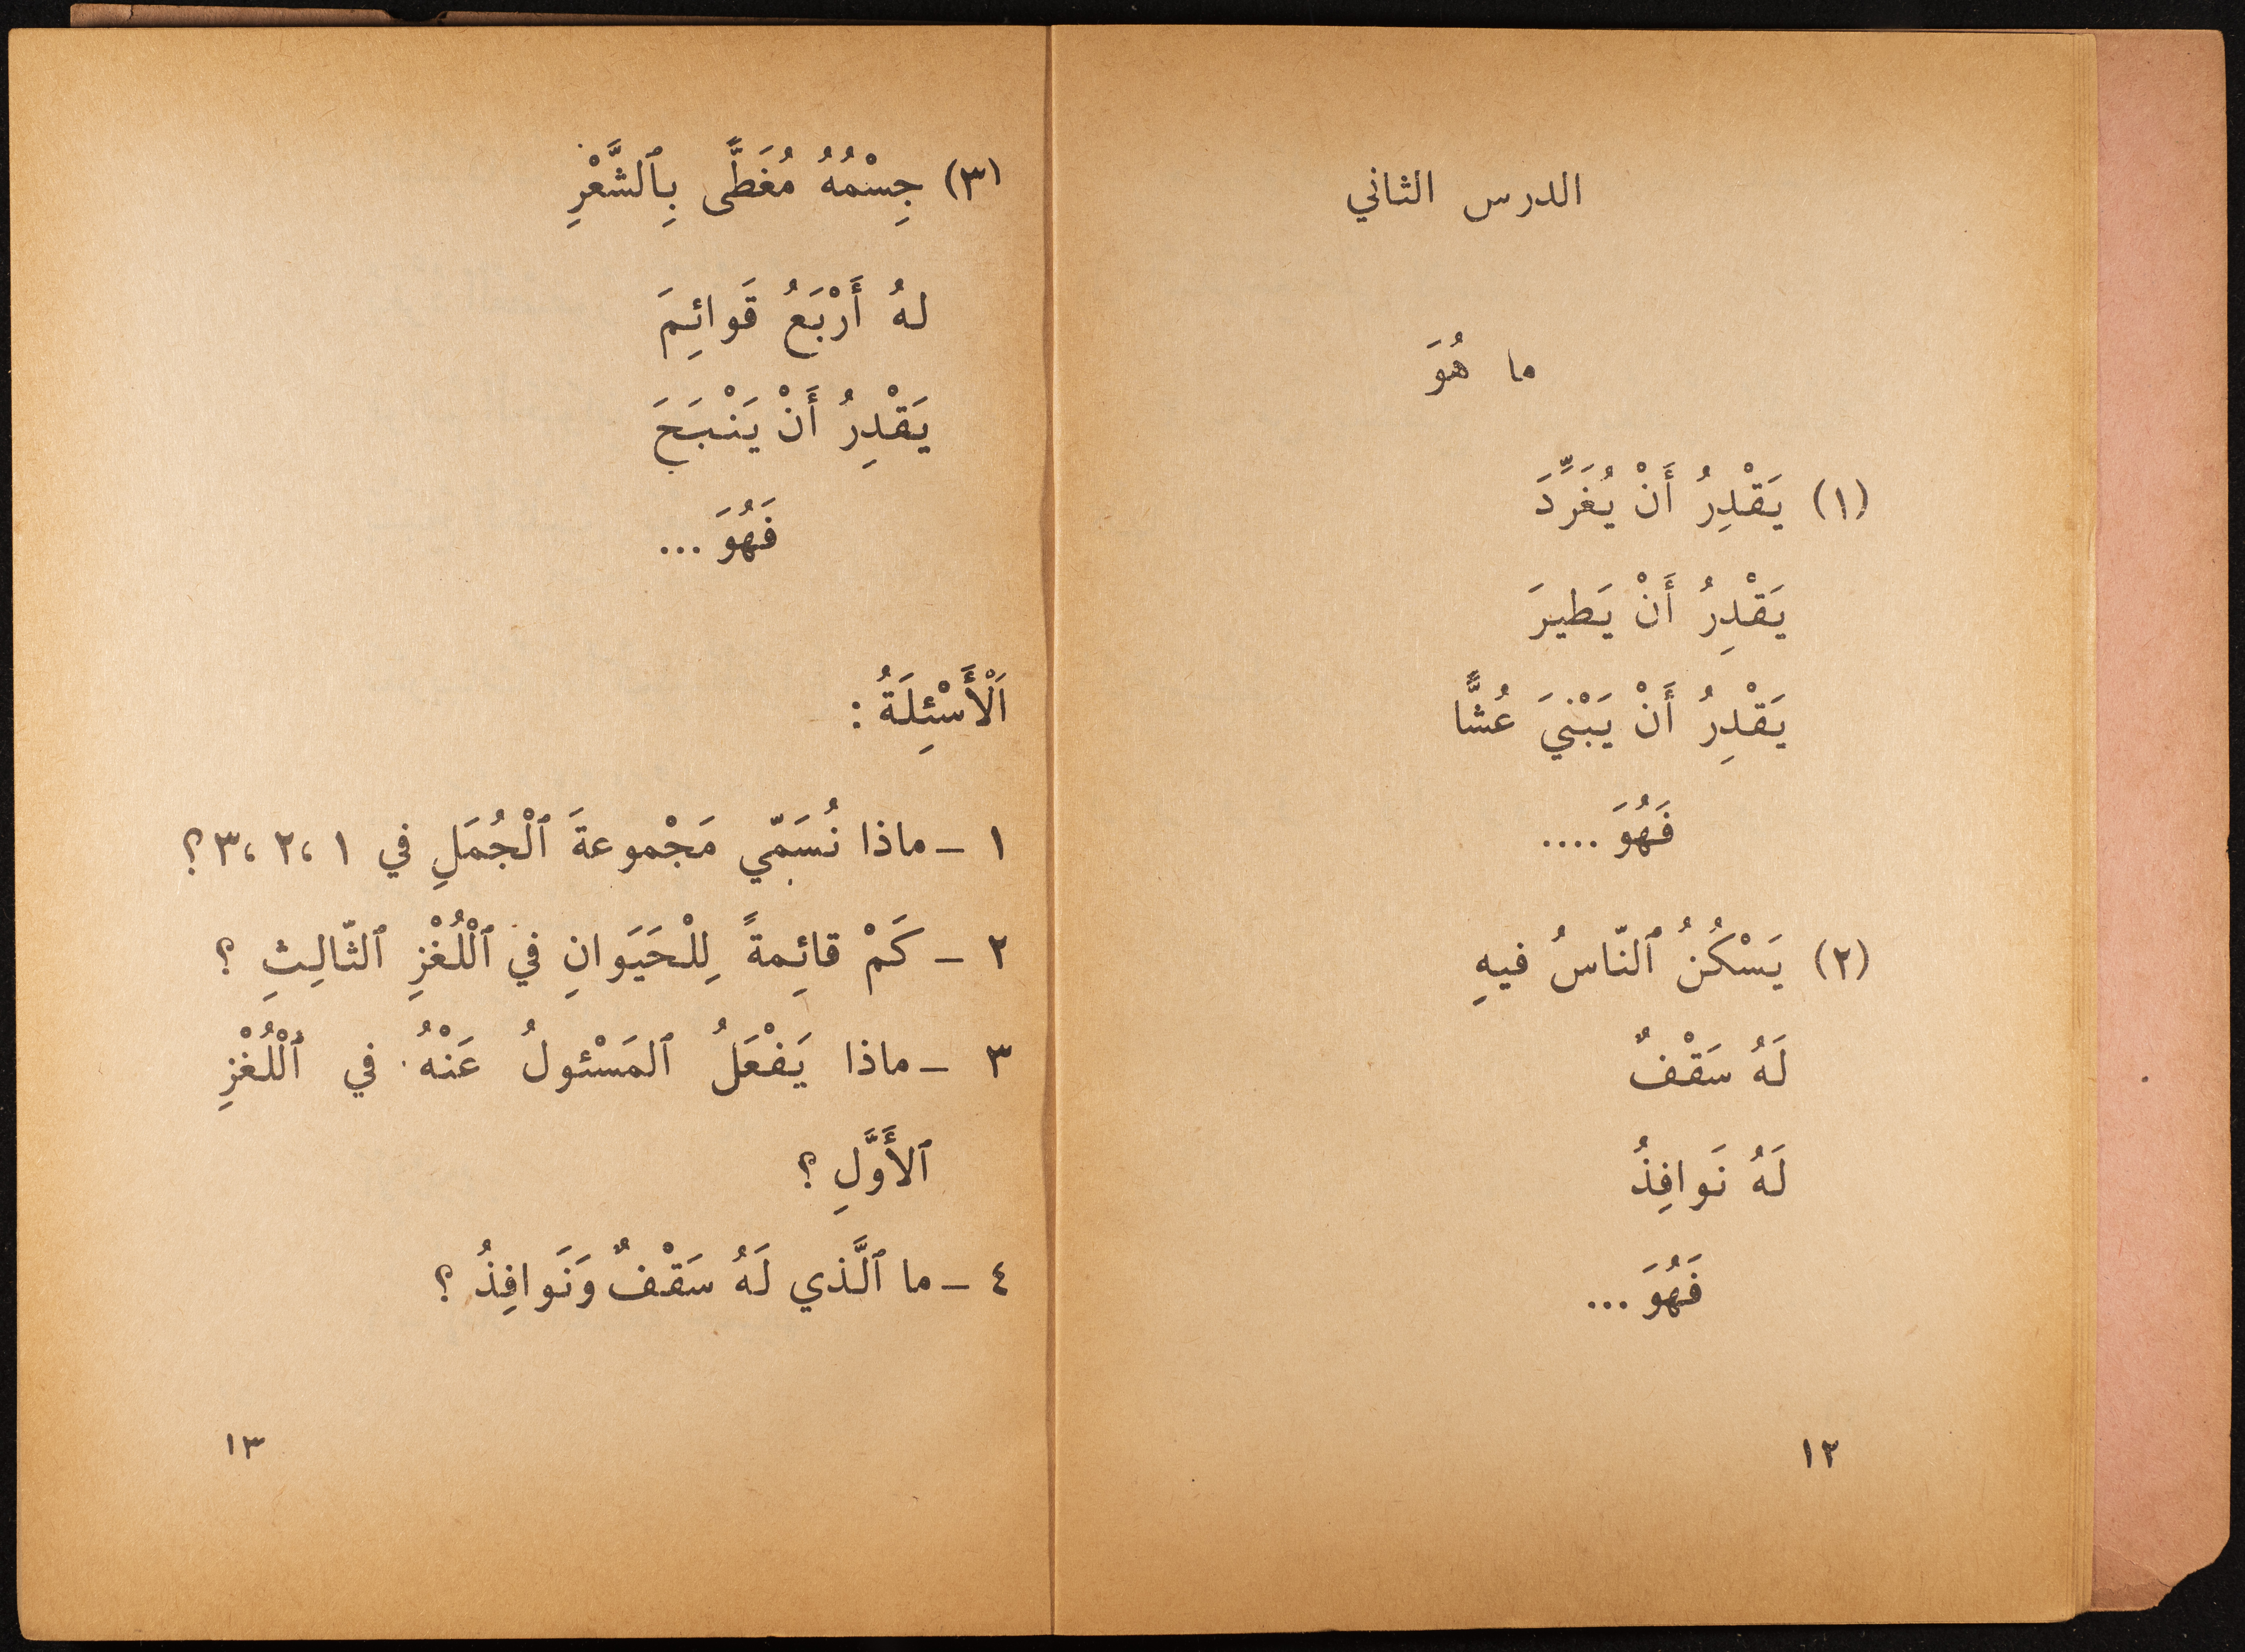 الدرس الثاني
ما هُوَ
(١) يَقْدِرُ أَنْ يُغَرِّدَ
يَقْدِرُ أَنْ يَطيرَ
يَقْدِرُ أَنْ يَبْنيَ عُشًّا
فَهُوَ ....
(٢) يَسْكُنُ ٱلنّاسُ فيهِ
لَهُ سَقْفٌ
لَهُ نَوافِذُ
فَهُوَ ...
١٢
(٣) جِسْمُهُ مُغَطًّى بِٱلشَّعْرِ
لهُ أَرْبَعُ قَوائِمَ
يَقْدِرُ أَنْ يَنْبَحَ
فَهُوَ ...
اَلْأَسْئِلَةُ :
١ - ماذا نُسَمّي مَجْموعةَ ٱلْجُمَلِ في ١، ٢، ٣؟
٢ - كَمْ قائِمةً لِلْحَيَوانِ في ٱلْلُغْزِ ٱلثّالِثِ ؟
٣ - ماذا يَفْعَلُ ٱلمَسْئولُ عَنْهُ في ٱلْلُغْزِ
ٱلأَوَّلِ ؟
٤ - ما ٱلَّذي لَهُ سَقْفٌ وَنَوافِذُ ؟
١٣